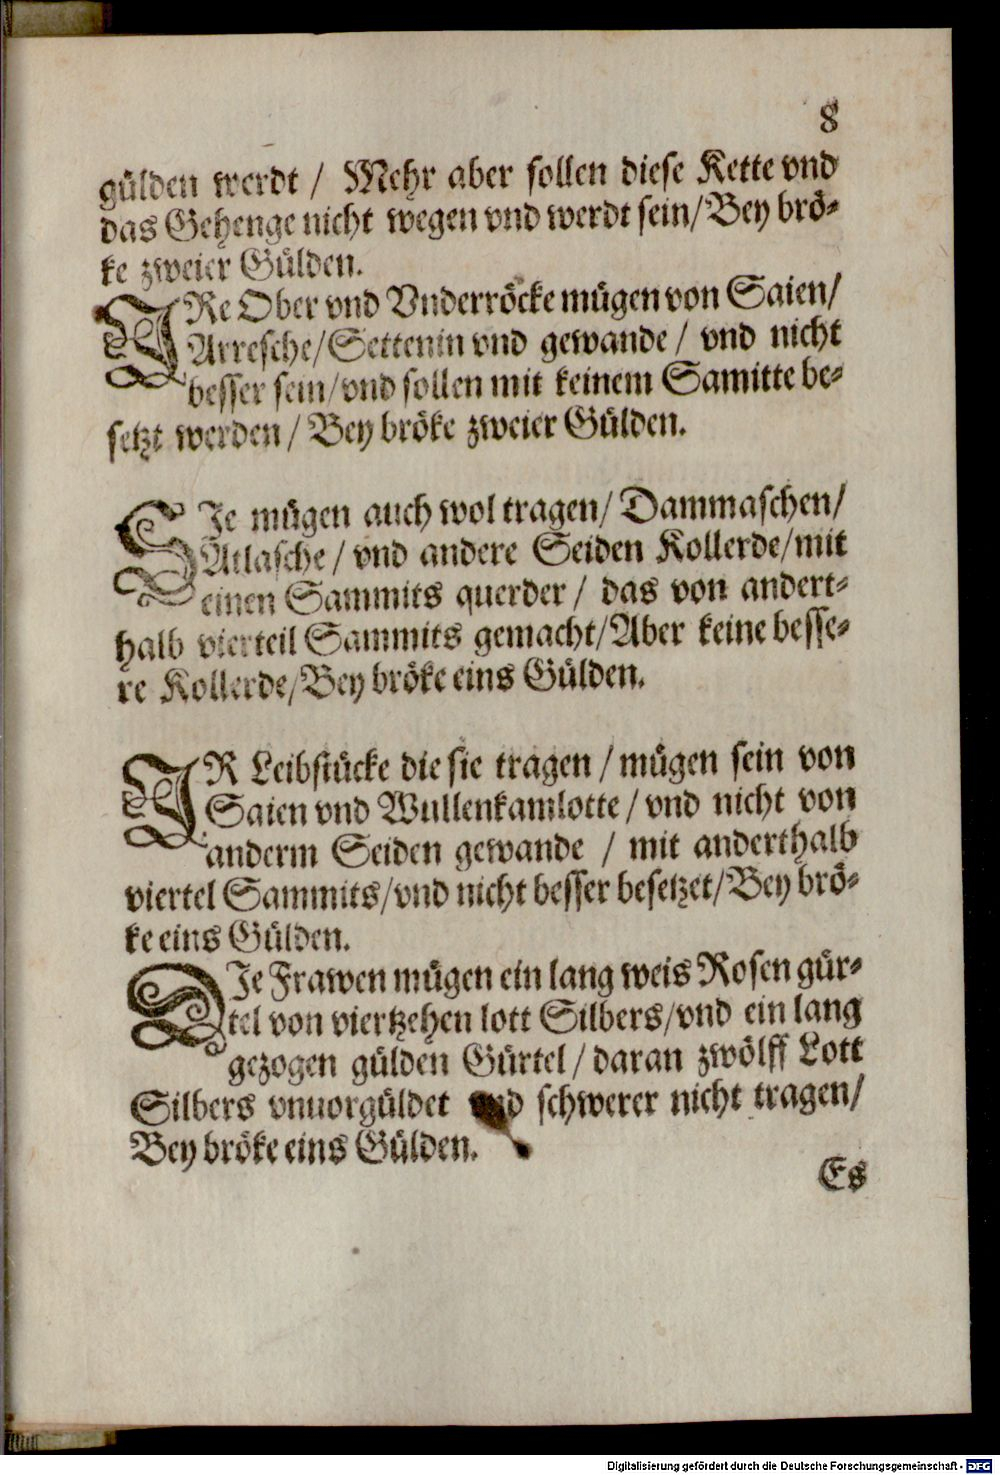 8
gülden werdt / Mehr aber sollen diese Kette vnd
das Gehenge nicht wegen vnd werdt sein/ Bey brö-
ke zweier Gülden.
IRe Ober vnd Vnderröcke mügen von Saien/
Arresche/ Settenin vnd gewande / vnd nicht
besser sein/ vnd sollen mit keinem Samitte be-
setzt werden / Bey bröke zweier Gülden.
SIe mügen auch wol tragen/ Dammaschen/
Atlasche / vnd andere Seiden Kollerde/ mit
einen Sammits querder / das von andert-
halb vierteil Sammits gemacht/ Aber keine besse-
re Kollerde/ Bey bröke eins Gülden.
IR Leibstücke die sie tragen / mügen sein von
Saien vnd Wullenkamlotte / vnd nicht von
anderm Seiden gewande / mit anderthalb
viertel Sammits/ vnd nicht besser besetzet/ Bey brö-
ke eins Gülden.
DIe Frawen mügen ein lang weis Rosen gür-
tel von viertzehen lott Silbers/ vnd ein lang
gezogen gülden Gürtel / daran zwölff Lott
Silbers vnuorgüldet vnd schwerer nicht tragen/
Bey bröke eins Gülden.
Es
Digitalisierung gefördert durch die Deutsche Forschungsgemeinschaft - DFG